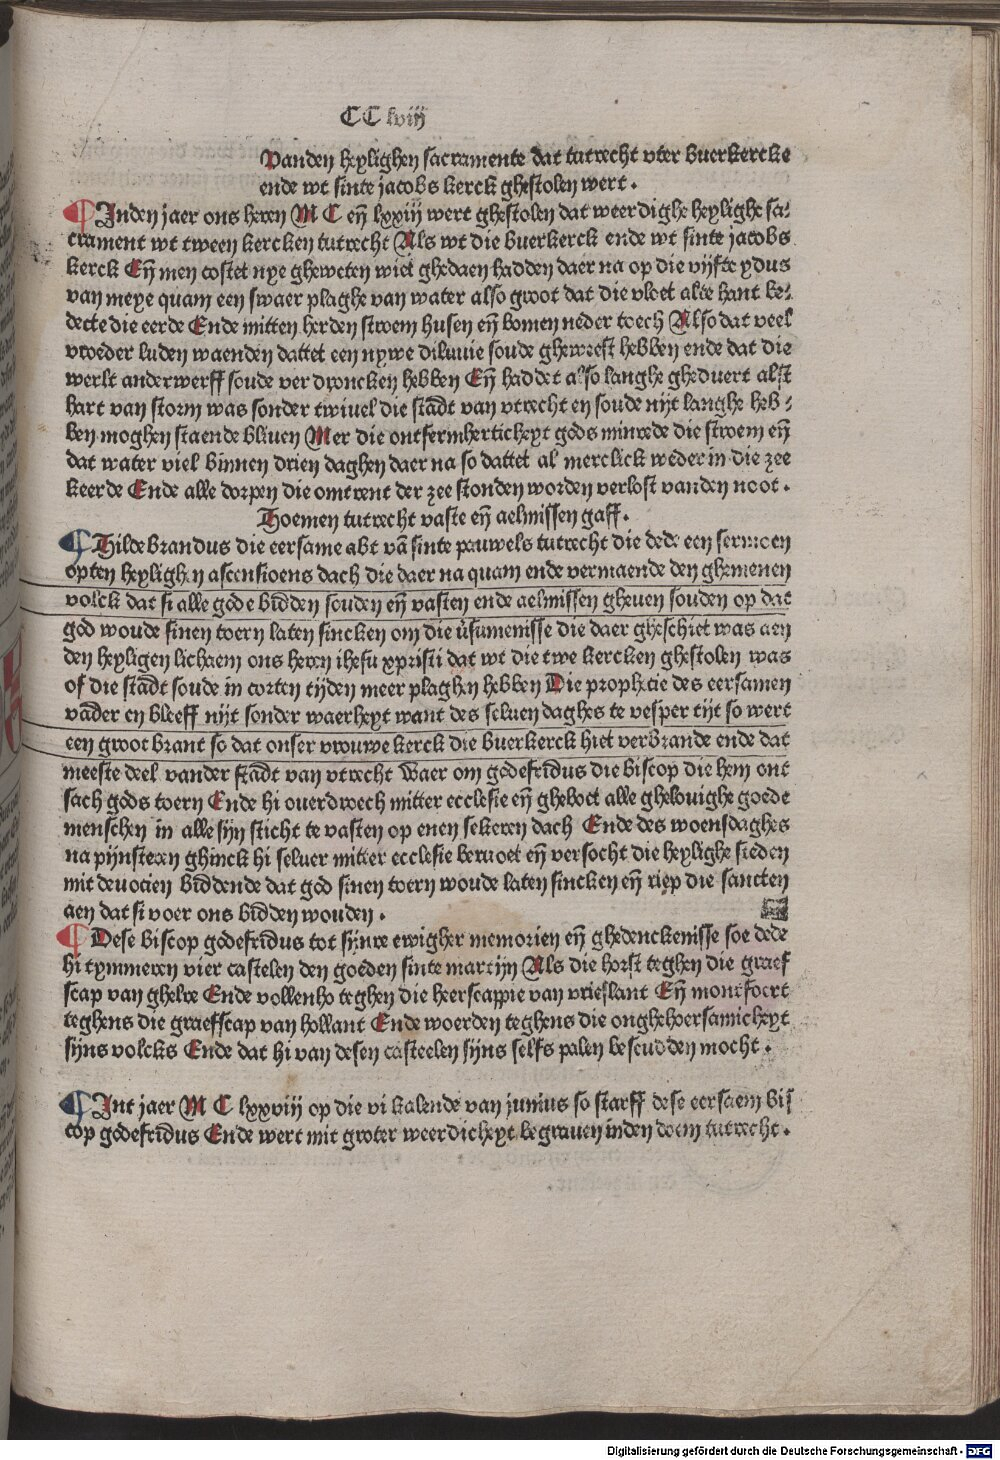 CC lviij
Vanden heylighen sacramente dat tutrecht vter buerkercke
ende wt sinte jacobs kerck ghestolen wert.
¶ Inden jaer ons heren M C eñ lxxiij wert ghestolen dat weerdighe heylighe sa⸗
crament wt tween kercken tutrecht Als wt die buerkerck ende wt sinte jacobs
kerck Eñ men costet nye gheweten wiet ghedaen hadden daer na op die vijfte ydus
van meye quam een swaer plaghe van water also groot dat die vloet alte hant be⸗
decte die eerde Ende mitten herden stroem husen eñ bomen neder toech Also dat veel
vroeder luden waenden dattet een nywe diluuie soude gheweest hebben ende dat die
werlt anderwerff soude verdroncken hebben Eñ haddet also langhe gheduert alst
hart van storm was sonder twiuel die stadt van vtrecht en soude nijt langhe heb⸗
ben moghen staende bliuen Mer die ontfermherticheyt gods minrede die stroem eñ
dat water viel binnen drien daghen daer na so dattet al merclick weder in die zee
keerde Ende alle dorpen die omtrent der zee stonden worden verlost vanden noot.
Hoemen tutrecht vaste eñ aelmissen gaff.
¶ Hildebrandus die eersame abt vã sinte pauwels tutrecht die dede een sermoen
opten heylighen ascensioens dach die daer na quam ende vermaende den ghemenen
volck dat si alle gode bidden souden eñ vasten ende aelmissen gheuen souden op dat
god woude sinen toern laten sincken om die v̈sumenisse die daer gheschiet was aen
den heyligen lichaem ons heren ihesu xpristi dat wt die twe kercken ghestolen was
of die stadt soude in corten tijden meer plaghen hebben Die prophecie des eersamen
vader en bleeff nijt sonder waerheyt want des seluen daghes te vesper tijt so wert
een groot brant so dat onser vrouwe kerck die buerkerck hiet verbrande ende dat
meeste deel vander stadt van vtrecht Waer om godefridus die biscop die hem ont
sach gods toern Ende hi ouerdroech mitter ecclesie eñ gheboet alle ghelouighe goede
menschen in alle sijn sticht te vasten op enen sekeren dach Ende des woensdaghes
na pijnsteren ghinck hi seluer mitter ecclesie beruoet eñ versocht die heylighe steden
mit deuocien biddende dat god sinen toern woude laten sincken eñ riep die sancten
aen dat si voer ons bidden wouden.
¶ Dese biscop godefridus tot sijnre ewigher memorien eñ ghedenckenisse soe dede
hi tymmeren vier castelen den goeden sinte martijn Als die horst teghen die graef
scap van ghelre Ende vollenho teghen die heerscappie van vrieslant Eñ montfoert
teghens die graefscap van hollant Ende woerden teghens die onghehoersamicheyt
sijns volcks Ende dat hi van desen casteelen sijns selfs palen bescudden mocht.
¶ Int jaer M C lxxviij op die vi kalende van junius so starff dese eersaem bis
cop godefridus Ende wert mit groter weerdicheyt begrauen inden doem tutrecht.
Digitalisierung gefördert durch die Deutsche Forschungsgemeinschaft - DFG